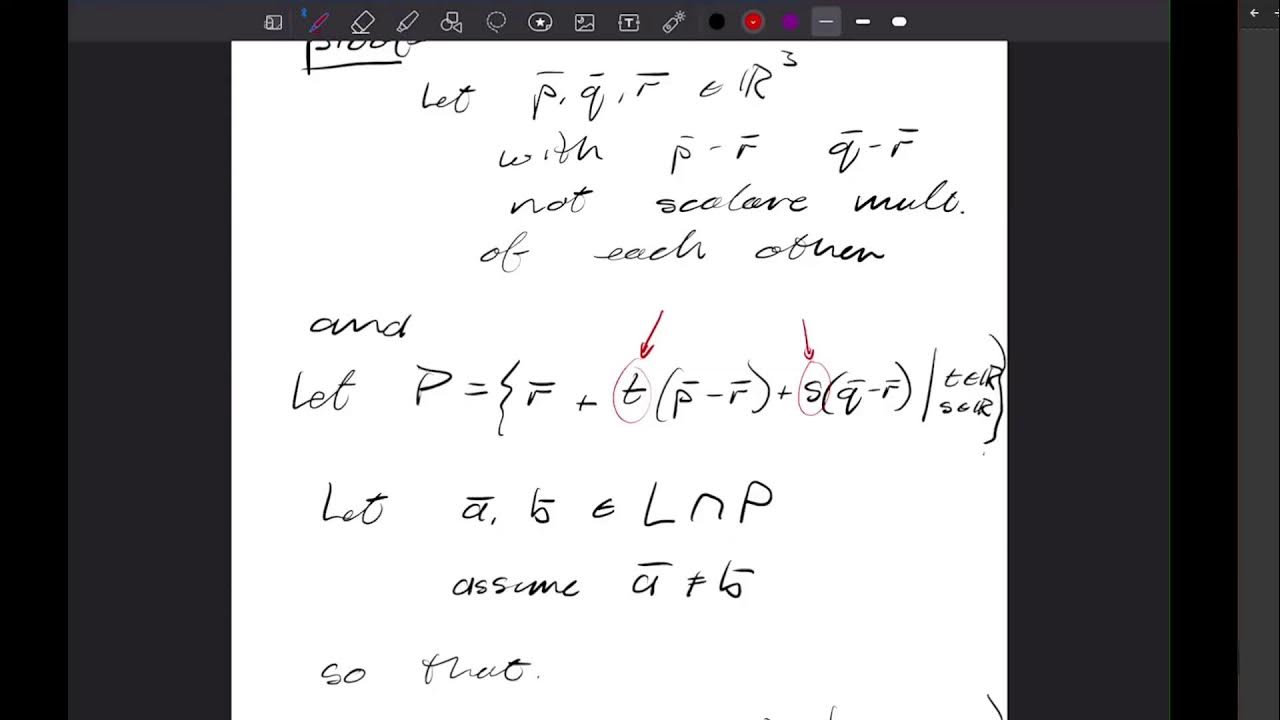 proof
Let p̄, q̄, r̄ ∈ ℝ³
with p̄ - r̄ q̄ - r̄
not scalare mult.
of each other
and
Let P = { r̄ + t(p̄ - r̄) + s(q̄ - r̄) | t∈ℝ s∈ℝ }
Let ā, b̄ ∈ L ∩ P
assume ā ≠ b̄
so that.